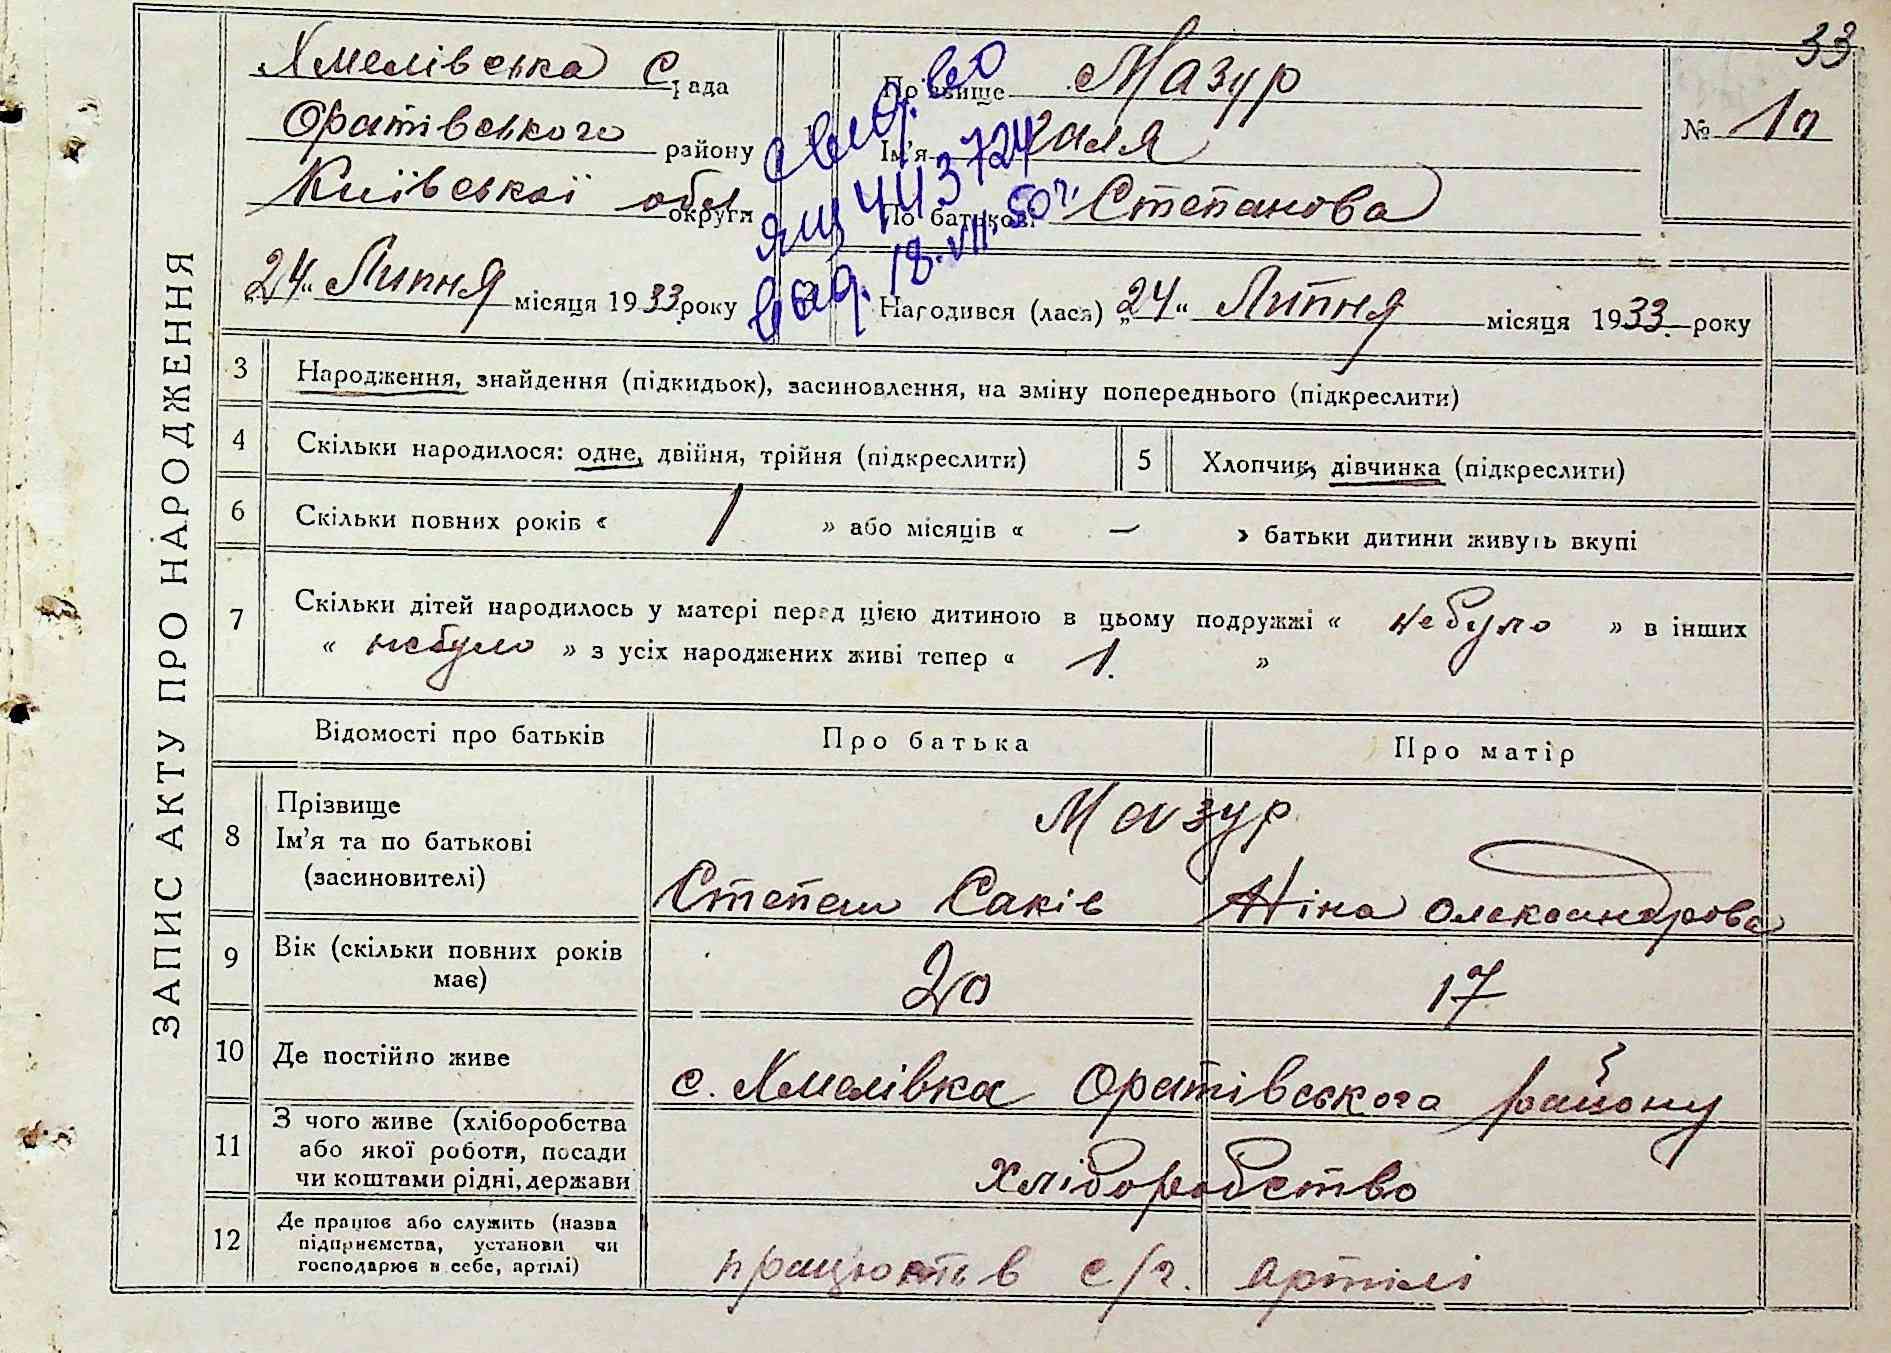 33
ЗАПИС АКТУ ПРО НАРОДЖЕННЯ
Хмелівська с рада
Оратівського району
Київської обл округи
Прізвище Мазур
Ім'я Галя
По батькові Степанова
№ 10
свид. во
ЯЩ 443724
выд. 18.VII.50 г.
„24" Липня місяця 1933 року
Народився (лася) „24" Липня місяця 1933 року
3 Народження, знайдення (підкидьок), засиновлення, на зміну попереднього (підкреслити)
4 Скільки народилося: одне, двійня, трійня (підкреслити)
5 Хлопчик, дівчинка (підкреслити)
6 Скільки повних років « 1 » або місяців « — » батьки дитини живуть вкупі
7 Скільки дітей народилось у матері перед цією дитиною в цьому подружжі « небуло » в інших
« небуло » з усіх народжених живі тепер « 1. »
Відомості про батьків Про батька Про матір
8 Прізвище
Ім'я та по батькові
(засиновителі)
Мазур
Степан Саків Ніна Олександрова
9 Вік (скільки повних років
має)
20 17
10 Де постійно живе с. Хмелівка Оратівського району
11 З чого живе (хліборобства
або якої роботи, посади
чи коштами рідні, держави
хліборобство
12 Де працює або служить (назва
підприємства, установи чи
господарює в себе, артілі)
працюють в с/г. артілі